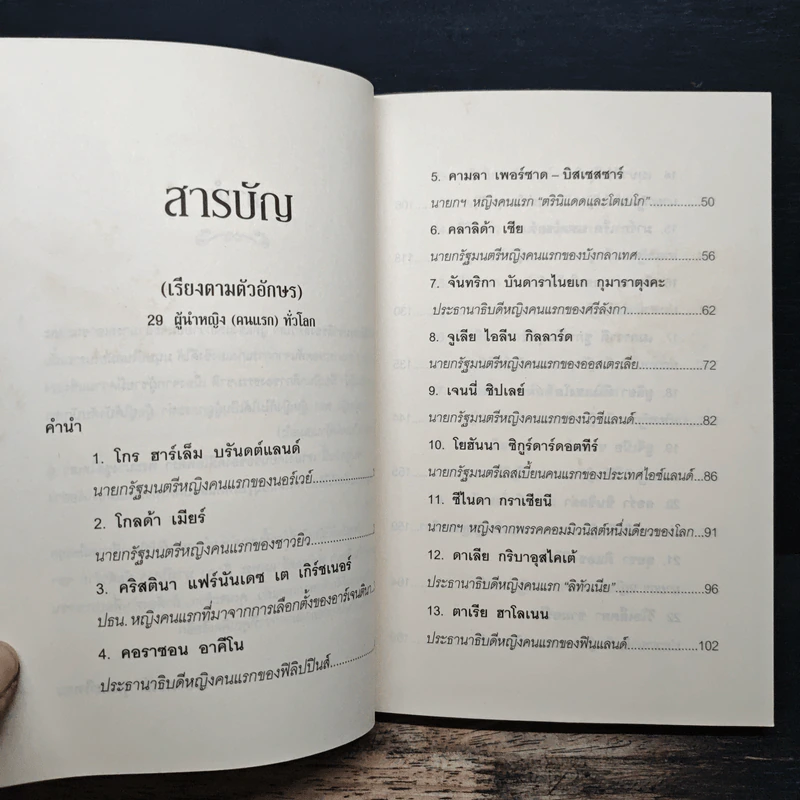 สารบัญ
(เรียงตามตัวอักษร)
29 ผู้นำหญิง (คนแรก) ทั่วโลก
คำนำ
1. โกร ฮาร์เล็ม บรันดต์แลนด์
นายกรัฐมนตรีหญิงคนแรกของนอร์เวย์
2. โกลด้า เมียร์
นายกรัฐมนตรีหญิงคนแรกของชาวยิว
3. คริสตินา แฟร์นันเดซ เต เกิร์ชเนอร์
ปธน. หญิงคนแรกที่มาจากการเลือกตั้งของอาร์เจนตินา
4. คอราซอน อาคีโน
ประธานาธิบดีหญิงคนแรกของฟิลิปปินส์
5. คามลา เพอร์ซาด – บิสเซสซาร์
นายกฯ หญิงคนแรก “ตรินิแดดและโตเบโก” 50
6. คลาลิด้า เซีย
นายกรัฐมนตรีหญิงคนแรกของบังกลาเทศ 56
7. จันทริกา บันดาราไนยเก กุมาราตุงคะ
ประธานาธิบดีหญิงคนแรกของศรีลังกา 62
8. จูเลีย ไอลีน กิลลาร์ด
นายกรัฐมนตรีหญิงคนแรกของออสเตรเลีย 72
9. เจนนี่ ชิปเลย์
นายกรัฐมนตรีหญิงคนแรกของนิวซีแลนด์ 82
10. โยฮันนา ซิกูร์ดาร์ดอตทีร์
นายกรัฐมนตรีเลสเบี้ยนคนแรกของประเทศไอซ์แลนด์ 86
11. ซีไนดา กราเซียนี
นายกฯ หญิงจากพรรคคอมมิวนิสต์หนึ่งเดียวของโลก 91
12. ดาเลีย กริบาอุสไคเต้
ประธานาธิบดีหญิงคนแรก “ลิทัวเนีย” 96
13. ตาเรีย ฮาโลเนน
ประธานาธิบดีหญิงคนแรกของฟินแลนด์ 102